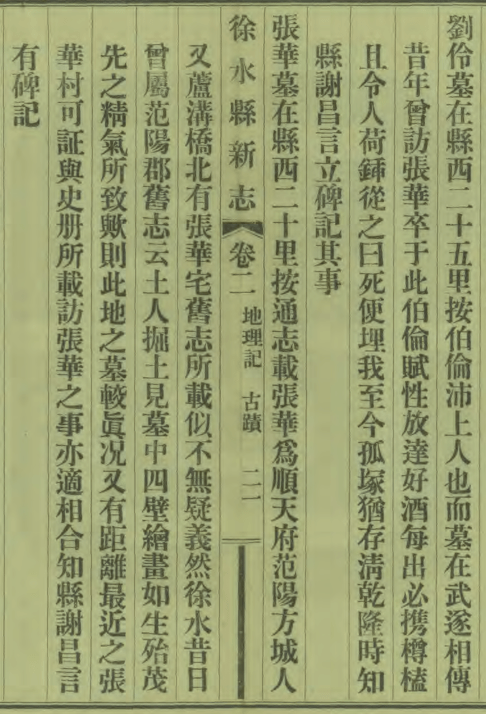 劉伶墓在縣西二十五里按伯倫沛上人也而墓在武遂相傳
昔年曾訪張華卒于此伯倫賦性放達好酒每出必携樽榼
且令人荷鍤從之曰死便埋我至今孤塚猶存淸乾隆時知
縣謝昌言立碑記其事
張華墓在縣西二十里按通志載張華爲順天府范陽方城人
徐水縣新志 卷二 地理記 古蹟 二一
又蘆溝橋北有張華宅舊志所載似不無疑義然徐水昔日
曾屬范陽郡舊志云土人掘土見墓中四壁繪畫如生殆茂
先之精氣所致歟則此地之墓較眞况又有距離最近之張
華村可証與史册所載訪張華之事亦適相合知縣謝昌言
有碑記